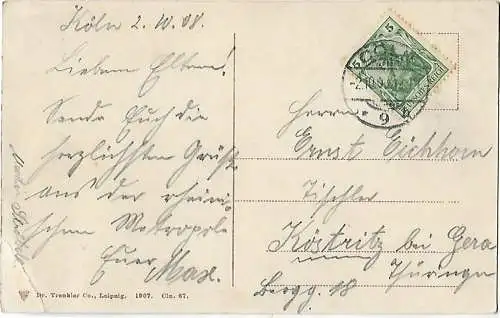 Köln 2. IV. 08.
Liebe Eltern!
Sende Euch die
herzlichsten Grüße
aus der rheini-
schen Metropole
Euer Max.
Herrn
Ernst Eichhorn
Tischler
Köstritz bei Gera
Thüringen
Bergg. 18
Dr. Trenkler Co., Leipzig. 1907. Cln. 67.